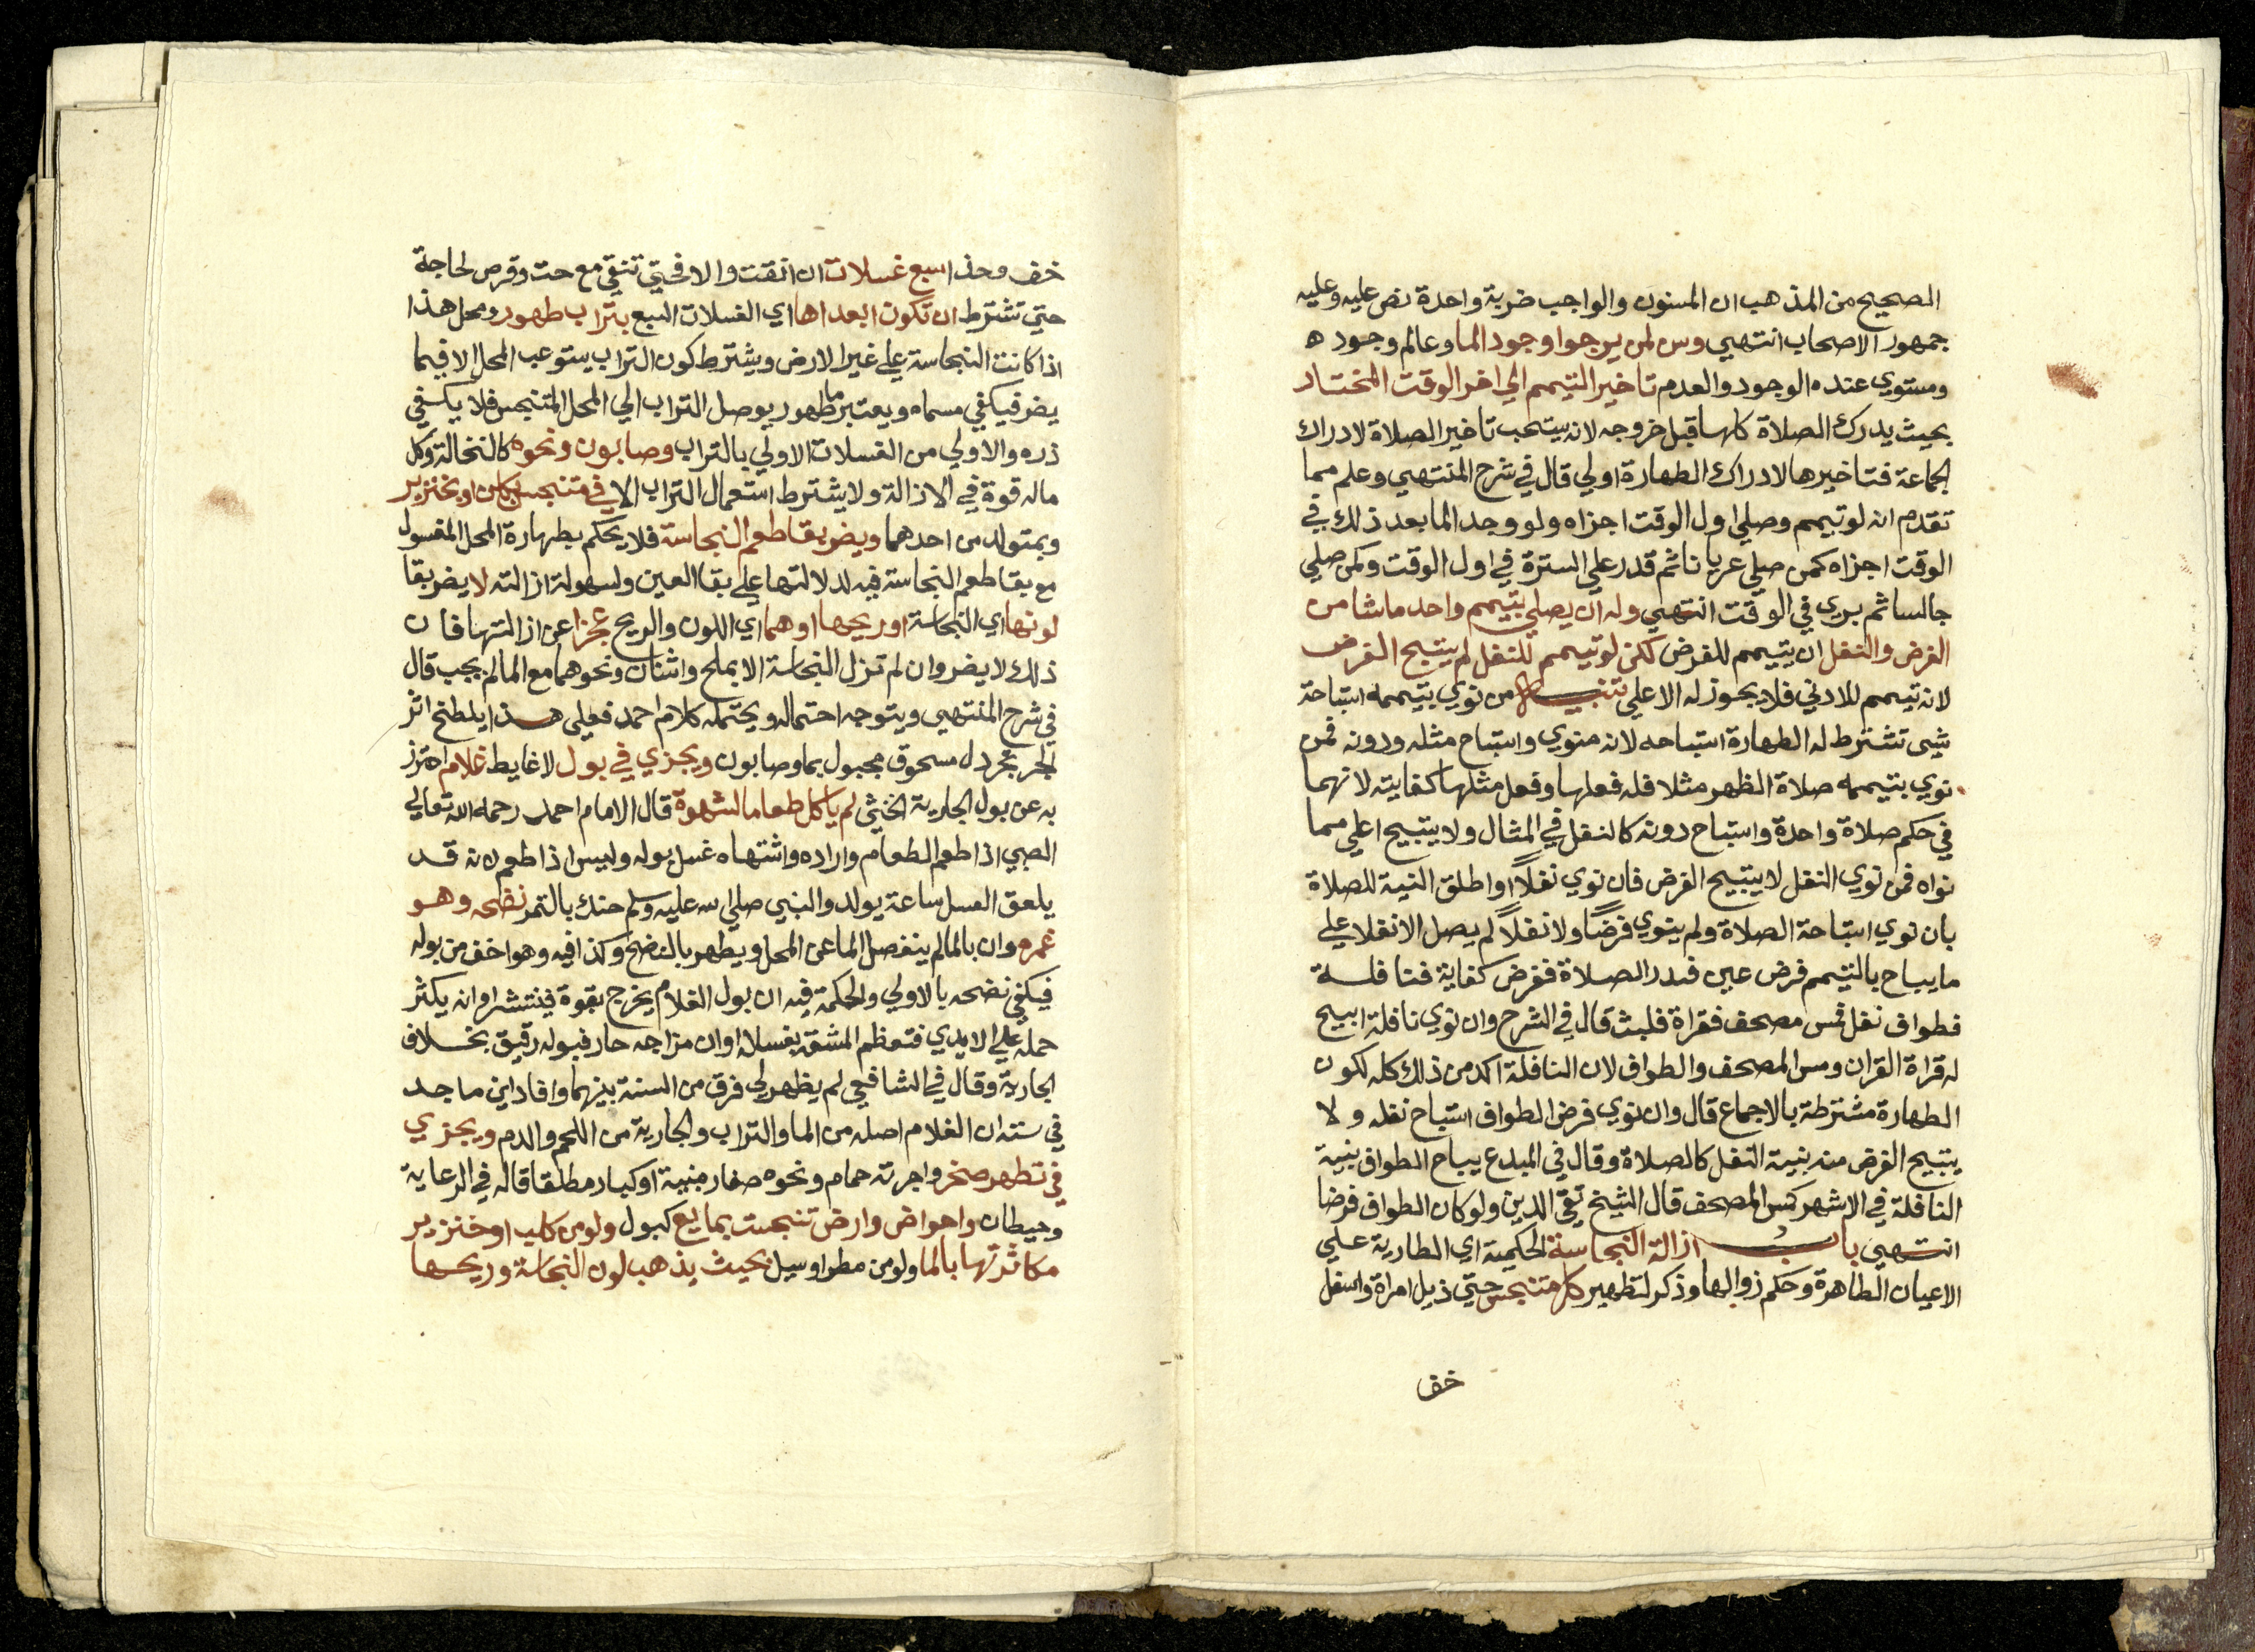 الصحيح من المذهب ان المسنون والواجب ضربة واحدة نص عليه وعليه
جمهور الاصحاب انتهي وسن لمن يرجوا وجود الما وعالم وجوده
ومستوي عنده الوجود والعدم تاخير التيمم الي اخر الوقت المختار
بحيث يدرك الصلاة كلها قبل خروجه لانه يستحب تاخير الصلاة لادراك
الجماعة فتاخيرها لادراك الطهارة اولي قال في شرح المنتهي وعلم مما
تقدم انه لو تيمم وصلي اول الوقت اجزاه ولو وجد الما بعد ذلك في
الوقت اجزاه كمن صلي عريانا ثم قدر علي السترة في اول الوقت وكمن صلي
جالسا ثم بري في الوقت انتهي وله ان يصلي بتيمم واحد ماشا من
الفرض والنفل ان يتيمم للفرض لكن لو تيمم للنفل لم يبتبح الفرض
لانه تيمم للادني فلا يجوز له الاعلي تنبيه من نوي بتيممه استباحة
شيى تشترط له الطهارة استباحه لانه منوي واستباح مثله ودونه فمن
نوي بتيممه صلاة الظهر مثلا فله فعلها وفعل مثلها كفايته لانهما
في حكم صلاة واحدة واستباح دونه كالنفل في المثال ولا يبتبيح اعلي مما
نواه فمن نوي النفل لا يبتبيح الفرض فان نوي نفلاً او اطلق النية للصلاة
بان نوي استباحة الصلاة ولم ينوي فرضًا ولا نفلاً لم يصل الا نفلا علي
ما يباح بالتيمم فرض عين فنذر الصلاة ففرض كفاية فنافلة
فطواف نفل فمس مصحف فقراة فلبث قال في الشرح وان نوي نافلة ابيح
له قراة القران ومس المصحف والطواف لان النافلة اكد من ذلك كله لكون
الطهارة مشترطة بالاجماع قال وان نوي فرض الطواف استباح نفله ولا
يبتبيح الفرض منه بنية النفل كالصلاة وقال في المبدع يباح الطواف بنية
النافلة في الاشهر كمس المصحف قال الشيخ تقي الدين ولو كان الطواف فرضا
انتهي باب ازالة النجاسة الحكمية اي الطارية علي
الاعيان الطاهرة وحكم زوالها وذكر لتطهير كل متنجس حتي ذيل امراة واسفل
خف
خف وحذا سبع غسلات ان انقت والا فحتي تنقي مع حت وقرص لحاجة
حتي تشترط ان تكون ابعداها اي الغسلات السبع بتراب طهور ومحل هذا
اذا كانت النجاسة علي غير الارض ويشترط كون التراب يستوعب المحل الا فيما
يضر فيكفي مسماه ويعتبر ما طهور يوصل التراب الي المحل المتنجس فلا يكفي
ذره والاولي من الغسلات الاولي بالتراب وصابون ونحوه كالنخالة وكل
ماله قوة في الازالة ولا يشترط استعمال التراب الا في متنجس بكلب او بخنزير
وبمتولد من احدهما ويضر بقا طعم النجاسة فلا يحكم بطهارة المحل المغسول
مع بقا طعم النجاسة فيه لدلالتها علي بقا العين ولسهولة ازالته لا يضر بقا
لونها اي النجاسة او ريحها او هما اي اللون والريح عجزا عن ازالتها فان
ذلك لا يضر وان لم تزل النجاسة الا بملح واشنان ونحوهما مع الما لم يجب قال
في شرح المنتهي ويتوجه احتماله ويحتمله كلام احمد فعلي هذا يلطخ اثر
الحر بخردل مسحوق مجبول بما وصابون ويجزي في بول لا غايط غلام احترز
به عن بول الجارية الخنثي لم ياكل طعاما لشهوة قال الامام احمد رحمه الله تعالي
الصبي اذا طعم الطعام واراده واشتهاه غسل بوله وليس اذا طعم لانه قد
يلعق العسل ساعة يولد والنبي صلي الله عليه وسلم حنك بالتمر نضحه وهو
غمره وان بالما لم ينفصل الما عن المحل ويطهر بالنضح وكذا فيه وهو اخف من بوله
فيكفي نضحه بالاولي والحكمة فيه ان بول الغلام يخرج بقوة فينتشر او انه يكثر
حمله علي الايدي فتعظم المشقة بغسله او ان مزاجه حار فبوله رقيق بخلاف
الجارية وقال في الشافعي لم يظهر لي فرق من السنة بينهما وافاد ابن ماجد
في سننه ان الغلام اصله من الما والتراب والجارية من اللحم والدم ويجزي
في تطهر صخر واجرنة حمام ونحوه صغار مبنية او كبار مطلقا قاله في الرعاية
وحيطان واهواض وارض تنجست بمايع كبول ولو من كلب او خنزير
مكاثرتها بالما ولو من مطر او سيل بحيث يذهب لون النجاسة وريحها